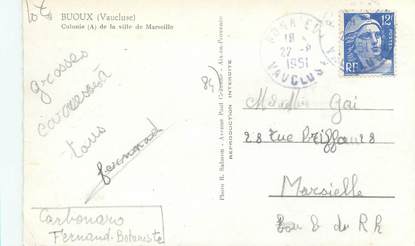 BUOUX (Vaucluse)
Colonie (A) de la ville de Marseille
grosses
caresses
tous
fernand
Carbonaro
Fernand-Botaniste
Photo R. Salmon - Avenue Paul Cézanne - Aix-en-Provence
REPRODUCTION INTERDITE
18
22 -8
1951
VAUCLUSE
12F
POSTES
RF
Gai
28 rue
28
Marseille
B du Rh